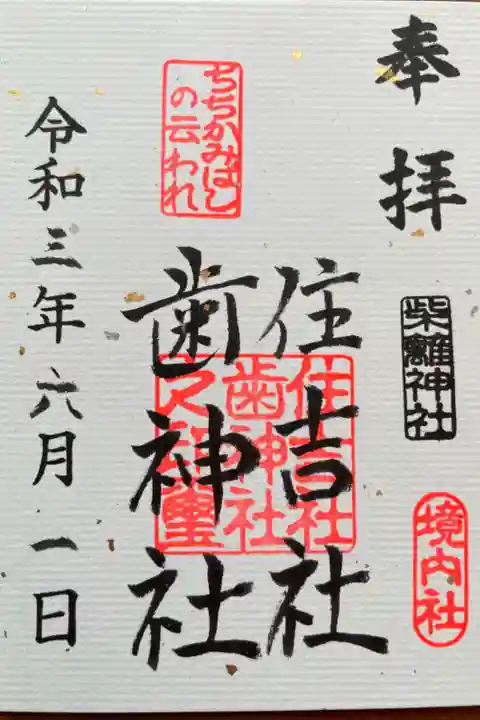 奉拝
柴籬神社
境内社
住吉社
歯神社
住吉社
歯神社
ちちかみばし
の云われ
令和三年六月一日